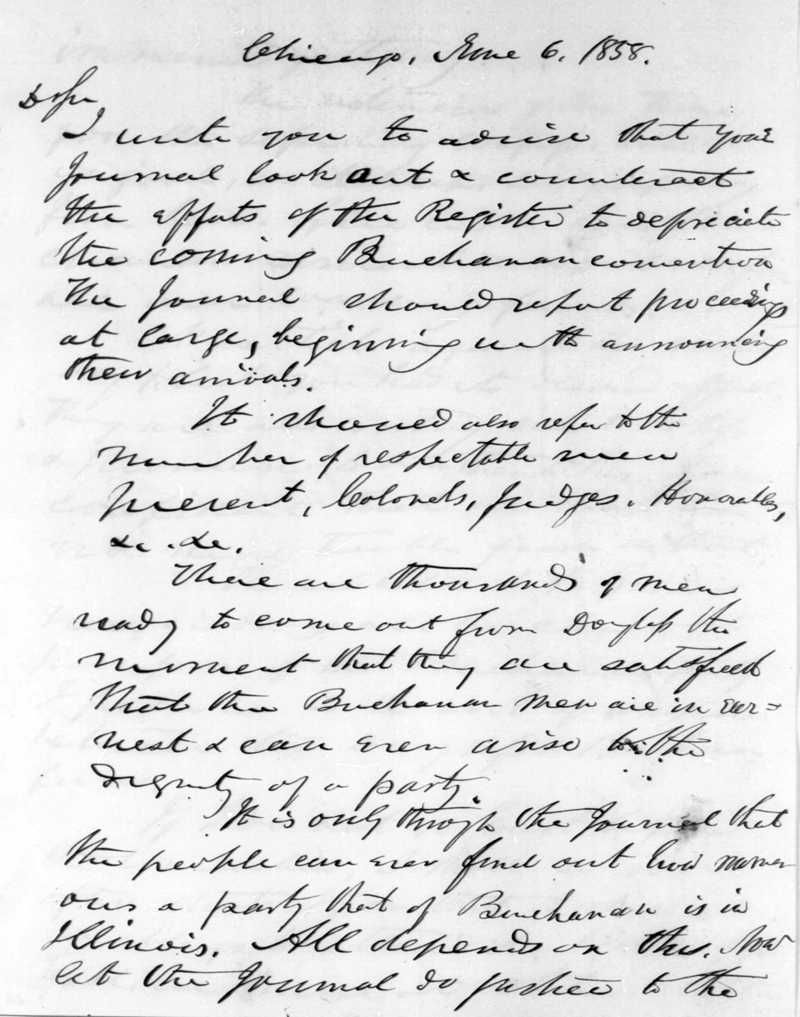 Chicago, June 6. 1858.
D Sir
I write you to advise that your
Journal, look out & counteract
the efforts of the Register to depreciate
the coming Buchanan convention
The Journal should report proceedings
at large, beginning with announcing
their arrivals.
It should also refer to the
number of respectable men
present, Colonels, Judges. Honorables,
&c. &c.
There are thousands of men
ready to come out from Douglass the
moment that they are satisfied
that the Buchanan men are in ear-
nest & can even arise to the
dignity of a party
It is only through the Journal that
the people can ever find out how numer
ous a party that of Buchanan is in
Illinois. All depends on this. Now
let the Journal do justice to the